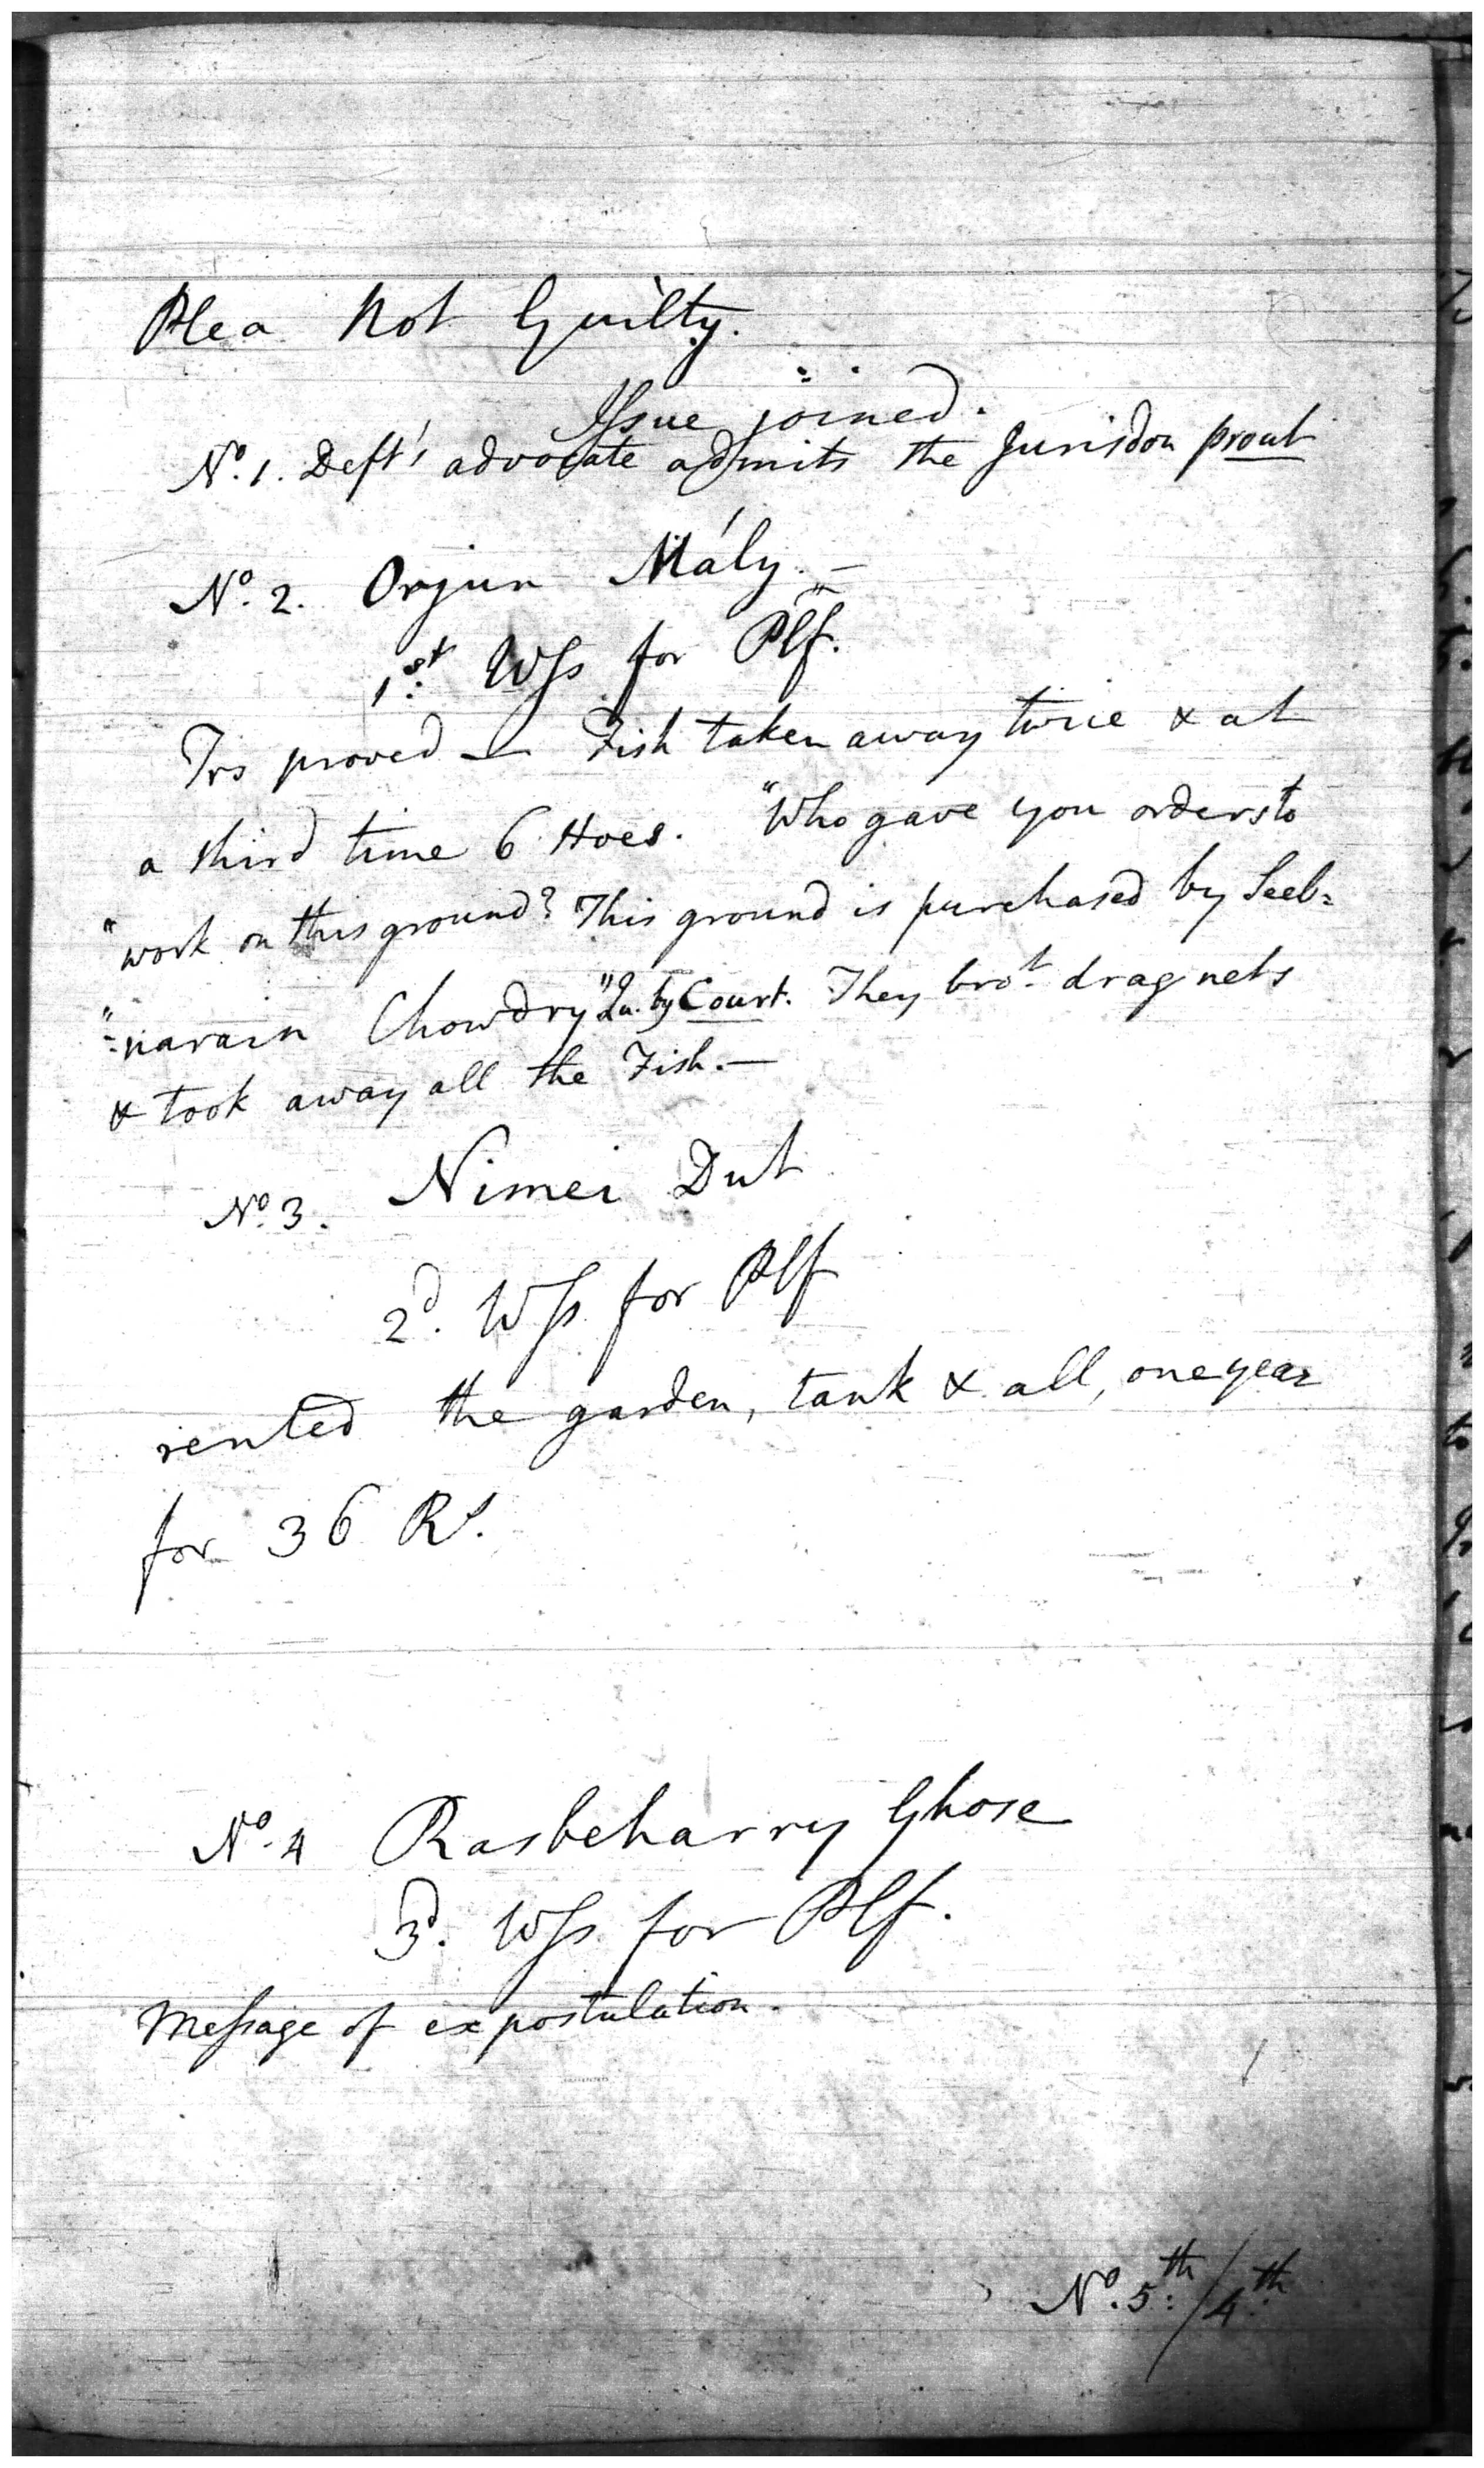 Plea Not Guilty.
Issue joined.
No. 1. Deft's advocate admits the Jurisdon prout
No. 2. Orjun Mály. —
1st. Wss for Plf.
Trs proved — Fish taken away twice & at
a third time 6 Hoes. "Who gave you orders to
"work on this ground? This ground is purchased by Seeb=
"=narain Chowdry" Qu. by Court. They brot. drag nets
& took away all the Fish. —
No. 3. Nimei Dut
2d. Wss for Plf
rented the garden, tank & all, one year
for 36 Rs.
No. 4 Rasbeharry Ghose
3d. Wss for Plf.
Message of expostulation.
No. 5th./4th.